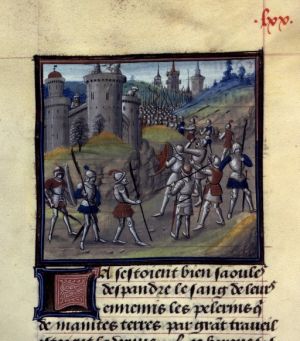 lxx.
Il s estoient bien saoule
despandre le sang de leurs
ennemis les pelerins q̃
de maintes terres par grãt traueil